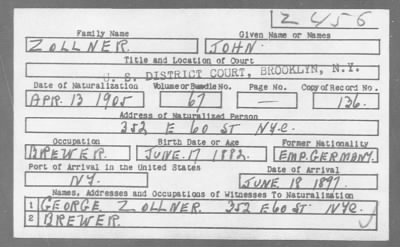 Z 456
Family Name Given Name or Names
ZOLLNER. JOHN.
Title and Location of Court
U. S. DISTRICT COURT, BROOKLYN, N.Y.
Date of Naturalization Volume or Bundle No. Page No. Copy of Record No.
APR. 13 1905 67 — 136.
Address of Naturalized Person
352 E 60 ST NYC.
Occupation Birth Date or Age Former Nationality
BREWER. JUNE. 17 1882. EMP. GERMANY.
Port of Arrival in the United States Date of Arrival
NY. JUNE 18 1897.
Names, Addresses and Occupations of Witnesses To Naturalization
1 GEORGE ZOLLNER. 352 E 60 ST NYC.
2 BREWER.